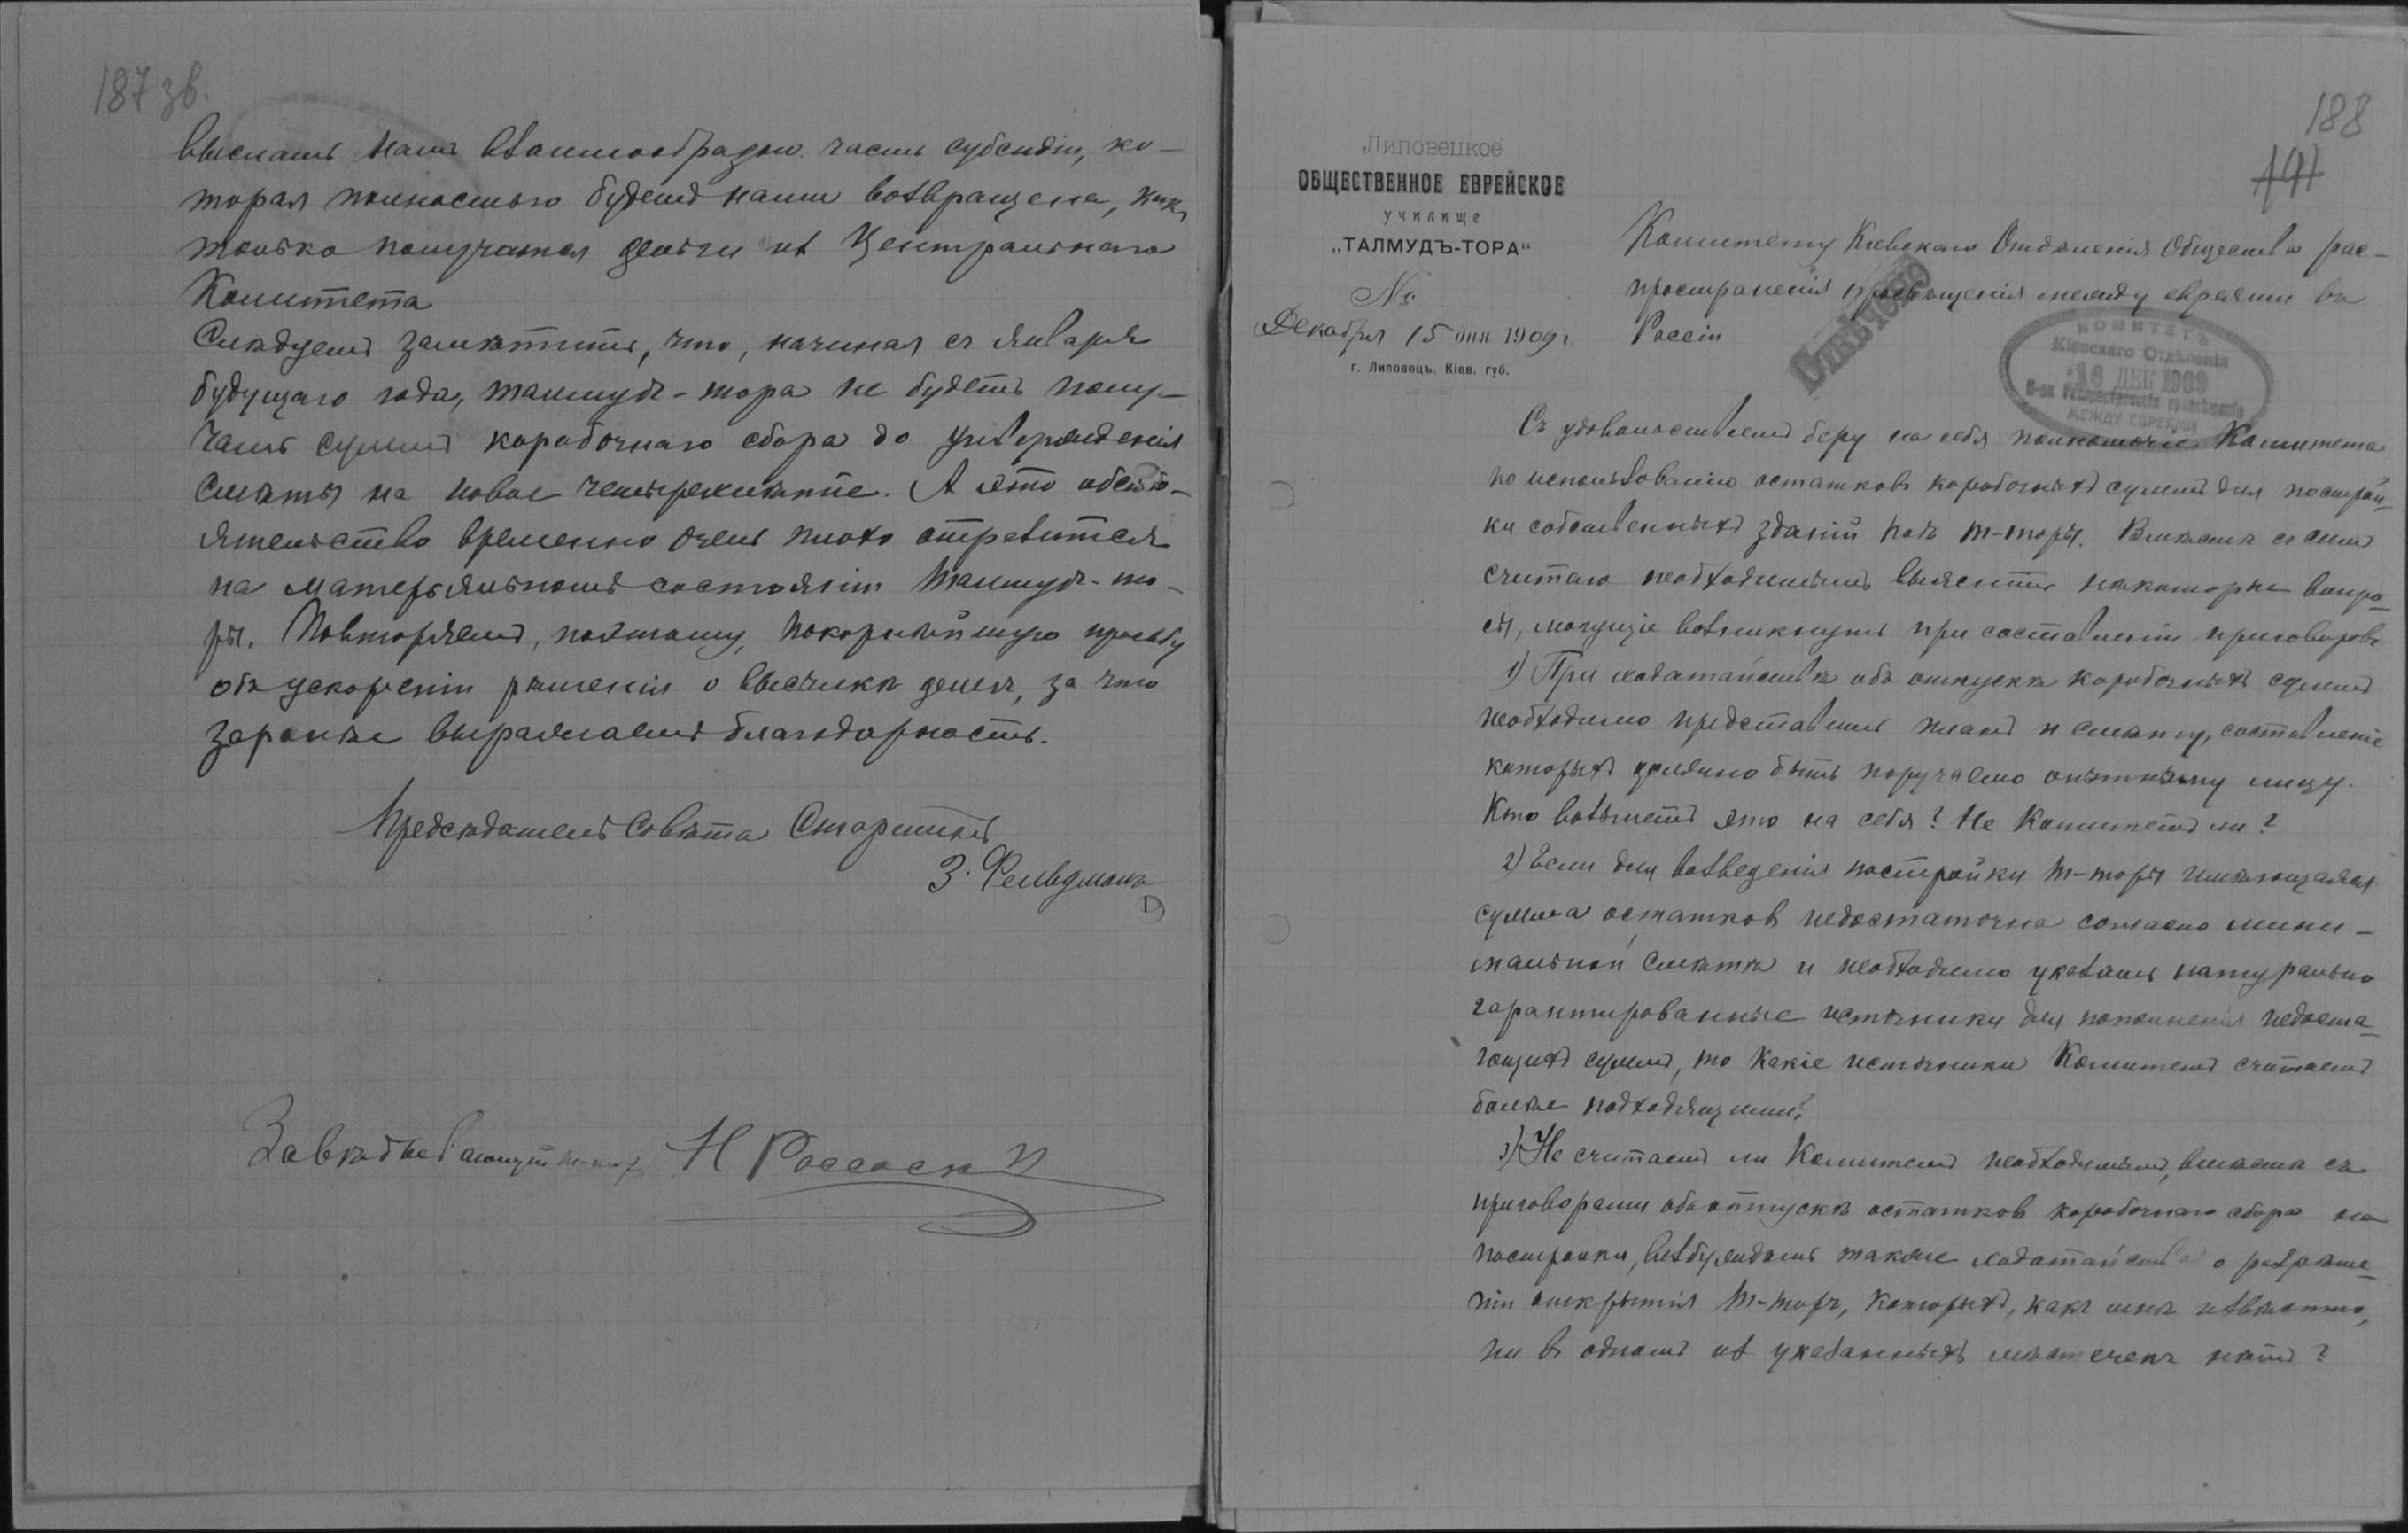 187 зв.
выслать намъ взаимообразн. часть субсидіи, ко-
торая полностью будетъ нами возвращена, какъ
только получатся деньги из Центральнаго
Комитета
Слѣдуетъ замѣтить, что, начиная съ января
будущаго года, талмудъ-тора не будетъ полу-
чать суммъ коробочнаго сбора до утвержденія
смѣты на новое четырехлѣтіе. А это обсто-
ятельство временно очень плохо отразится
на матерьяльномъ состояніи талмудъ-то-
ры. Повторяемъ, поэтому, покорнѣйшую просьбу
объ ускореніи рѣшенія о высылкѣ денегъ, за что
заранѣе выражаемъ благодарность.
Предсѣдатель Совѣта Старшинъ
З. Фельдманъ
Завѣдывающій т-т
Н Россоски
188
191
Липовецкое
ОБЩЕСТВЕННОЕ ЕВРЕЙСКОЕ
училище
„ТАЛМУДЪ-ТОРА"
№
Декабря 15 дня 1909 г.
г. Липовецъ, Кіев. губ.
Комитету Кіевскаго Отдѣленія Общества рас-
пространенія просвѣщенія между евреями въ
Россіи
Отвѣчено
КОМИТЕТЪ
Кіевскаго Отдѣленія
16 ДЕК 1909
О-ва распространенія просвѣщенія
МЕЖДУ ЕВРЕЯМИ
Съ удовольствіемъ беру на себя полномочіе Комитета
по использованію остатковъ коробочныхъ суммъ для построй-
ки собственныхъ зданій подъ т-торы. Вмѣстѣ съ симъ
считаю необходимымъ выяснить нѣкоторые вопро-
сы, могущіе возникнуть при составленіи приговоровъ
1) При ходатайствѣ объ отпускѣ коробочныхъ суммъ
необходимо представить планъ и смѣту, составленіе
которыхъ должно быть поручаемо опытному лицу.
Кто возьметъ это на себя? Не Комитетъ ли?
2) Если для возведенія постройки т-торы имѣющаяся
сумма остатков недостаточна согласно мини-
мальной смѣтѣ и необходимо указать натурально
гарантированные источники для пополненія недоста-
ющихъ суммъ, то какіе источники Комитетъ считаетъ
болѣе подходящими?
3) Не считаетъ ли Комитетъ необходимымъ, вмѣстѣ съ
приговорами объ отпускѣ остатков коробочнаго сбора на
постройки, возбуждать также ходатайства о разрѣше-
ніи открытія т-торъ, которыхъ, какъ мнѣ извѣстно,
ни въ одномъ из указанныхъ мѣстечекъ нѣтъ?